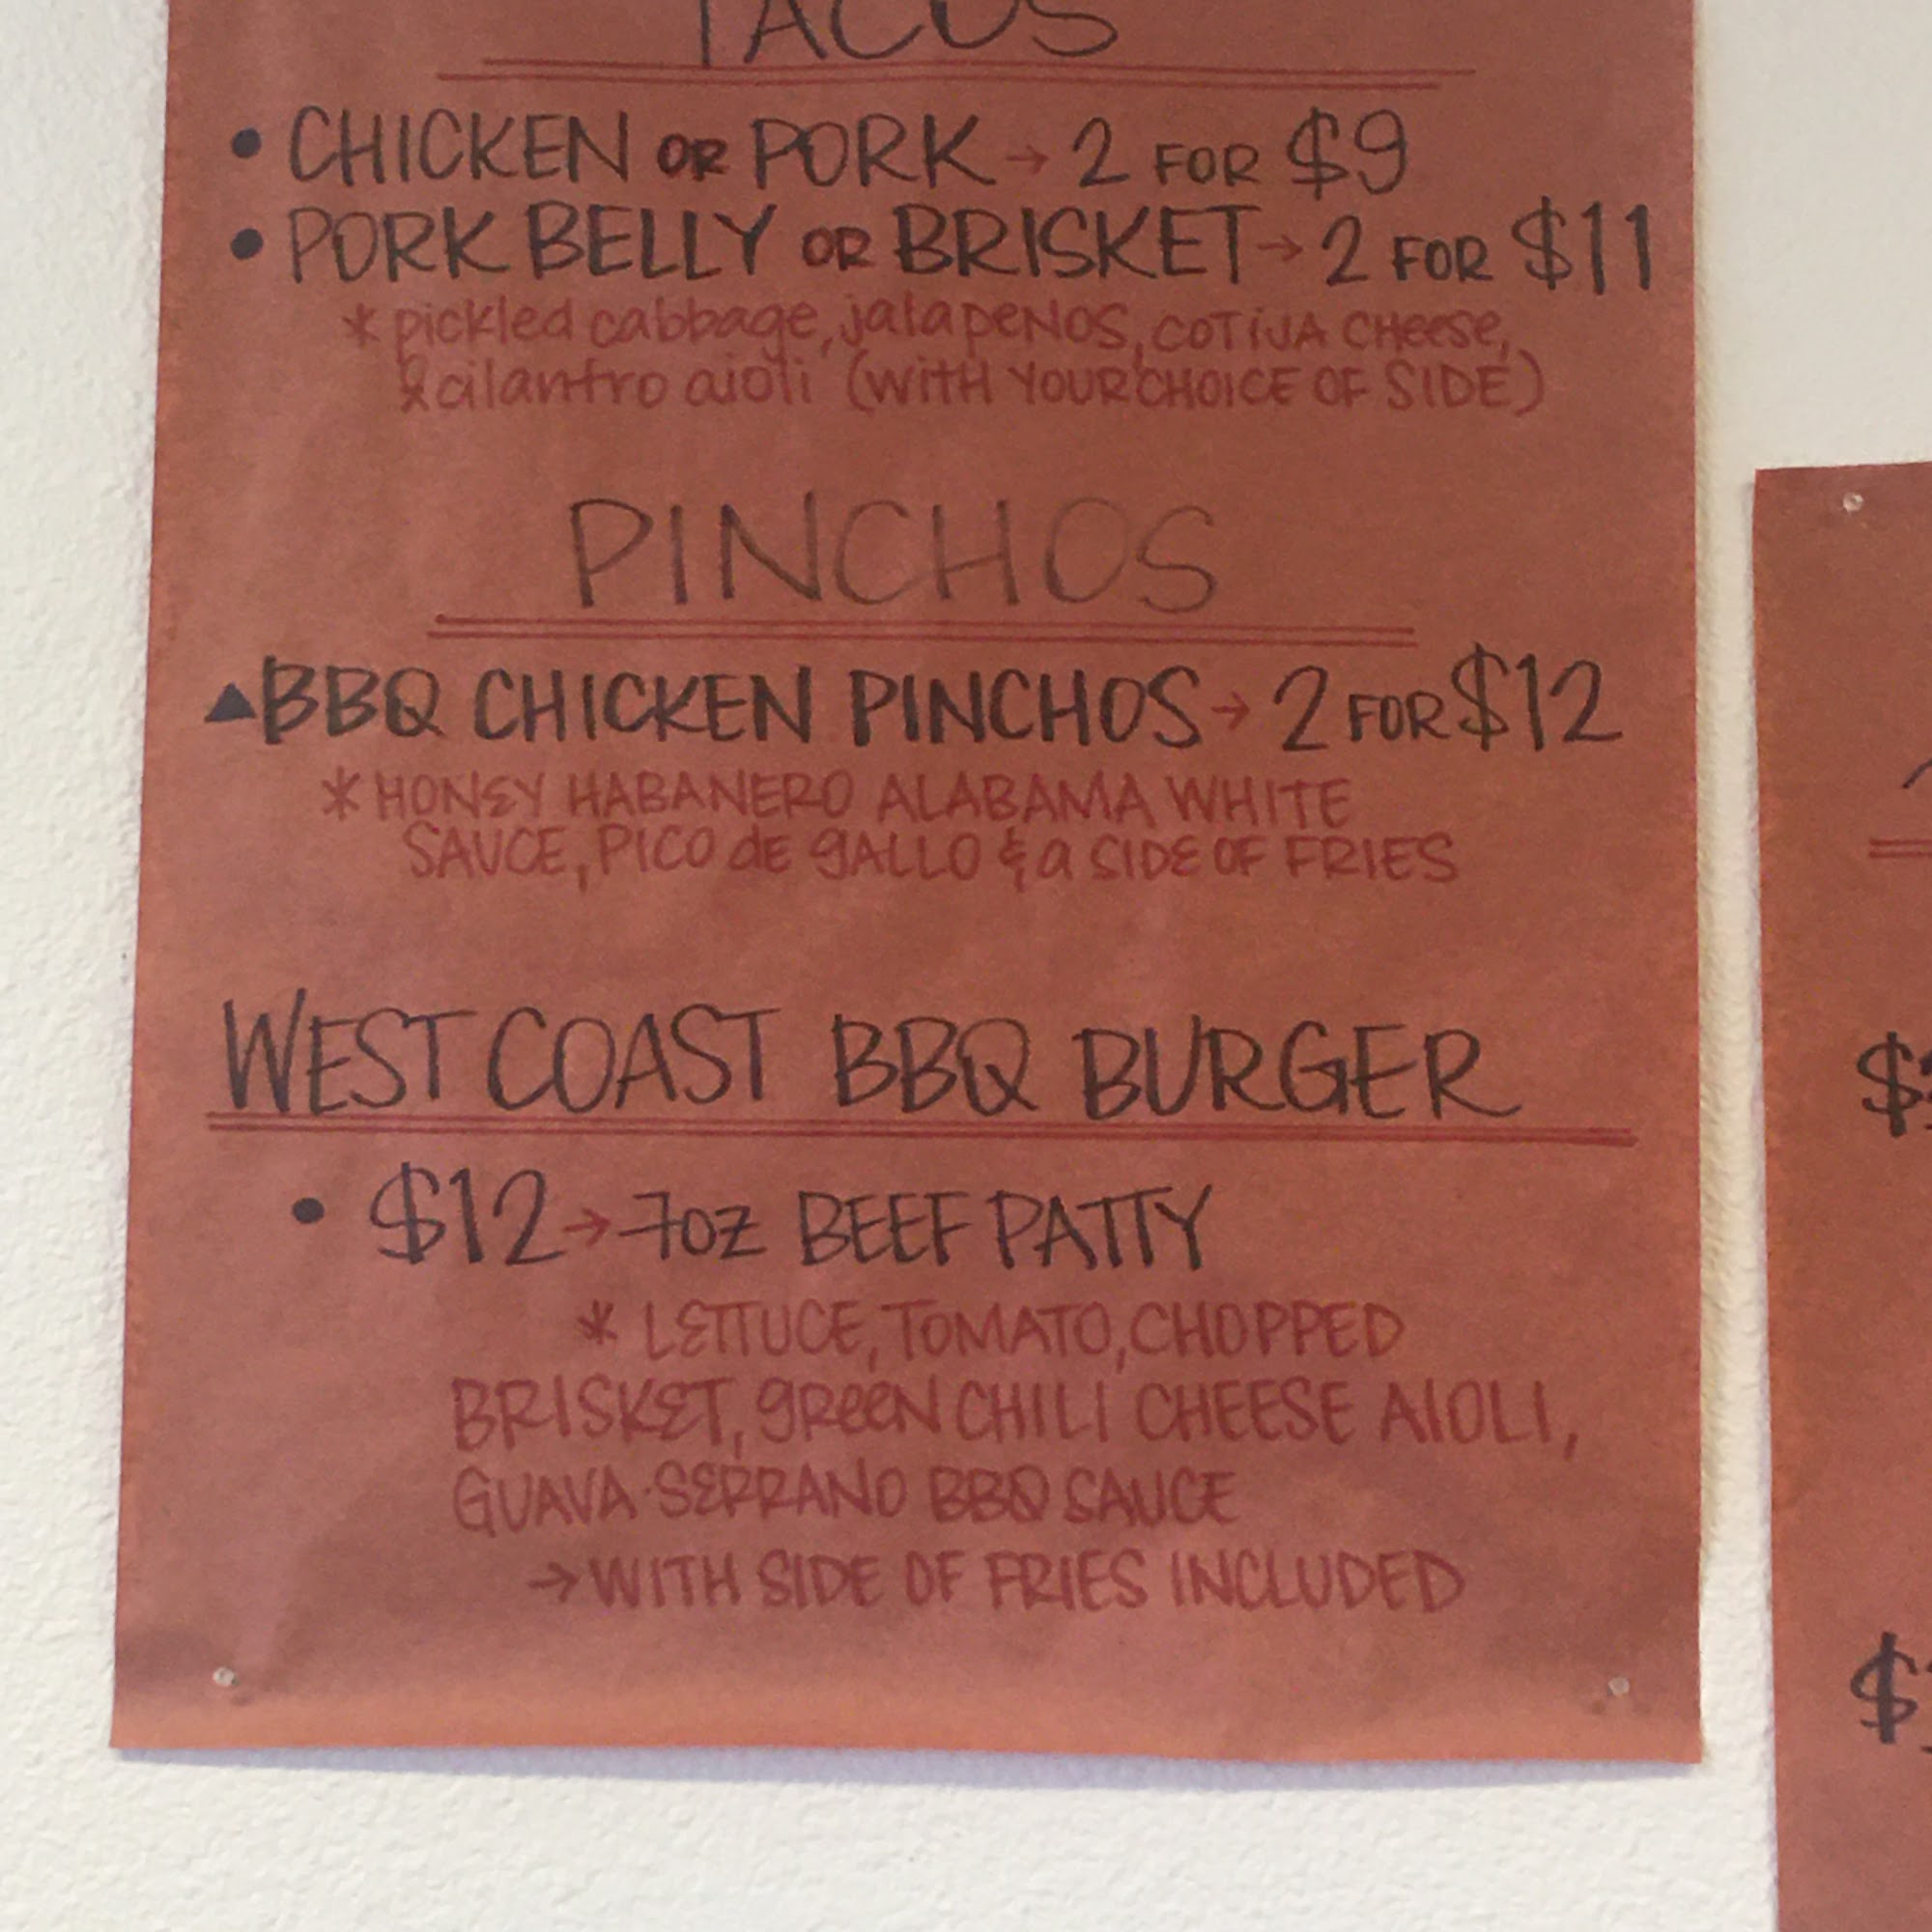 TACOS
• CHICKEN OR PORK → 2 FOR $9
• PORK BELLY OR BRISKET → 2 FOR $11
* pickled cabbage, jalapeños, COTIJA CHeese,
& cilantro aioli (WITH YOUR CHOICE OF SIDE)
PINCHOS
▲ BBQ CHICKEN PINCHOS → 2 FOR $12
* HONEY HABANERO ALABAMA WHITE
SAUCE, PICO de gALLO & a SIDE OF FRIES
WEST COAST BBQ BURGER
• $12 → 7oz BEEF PATTY
* LETTUCE, TOMATO, CHOPPED
BRISKET, gReeN CHILI CHEESE AIOLI,
GUAVA·SERRANO BBQ SAUCE
→ WITH SIDE OF FRIES INCLUDED
$
$